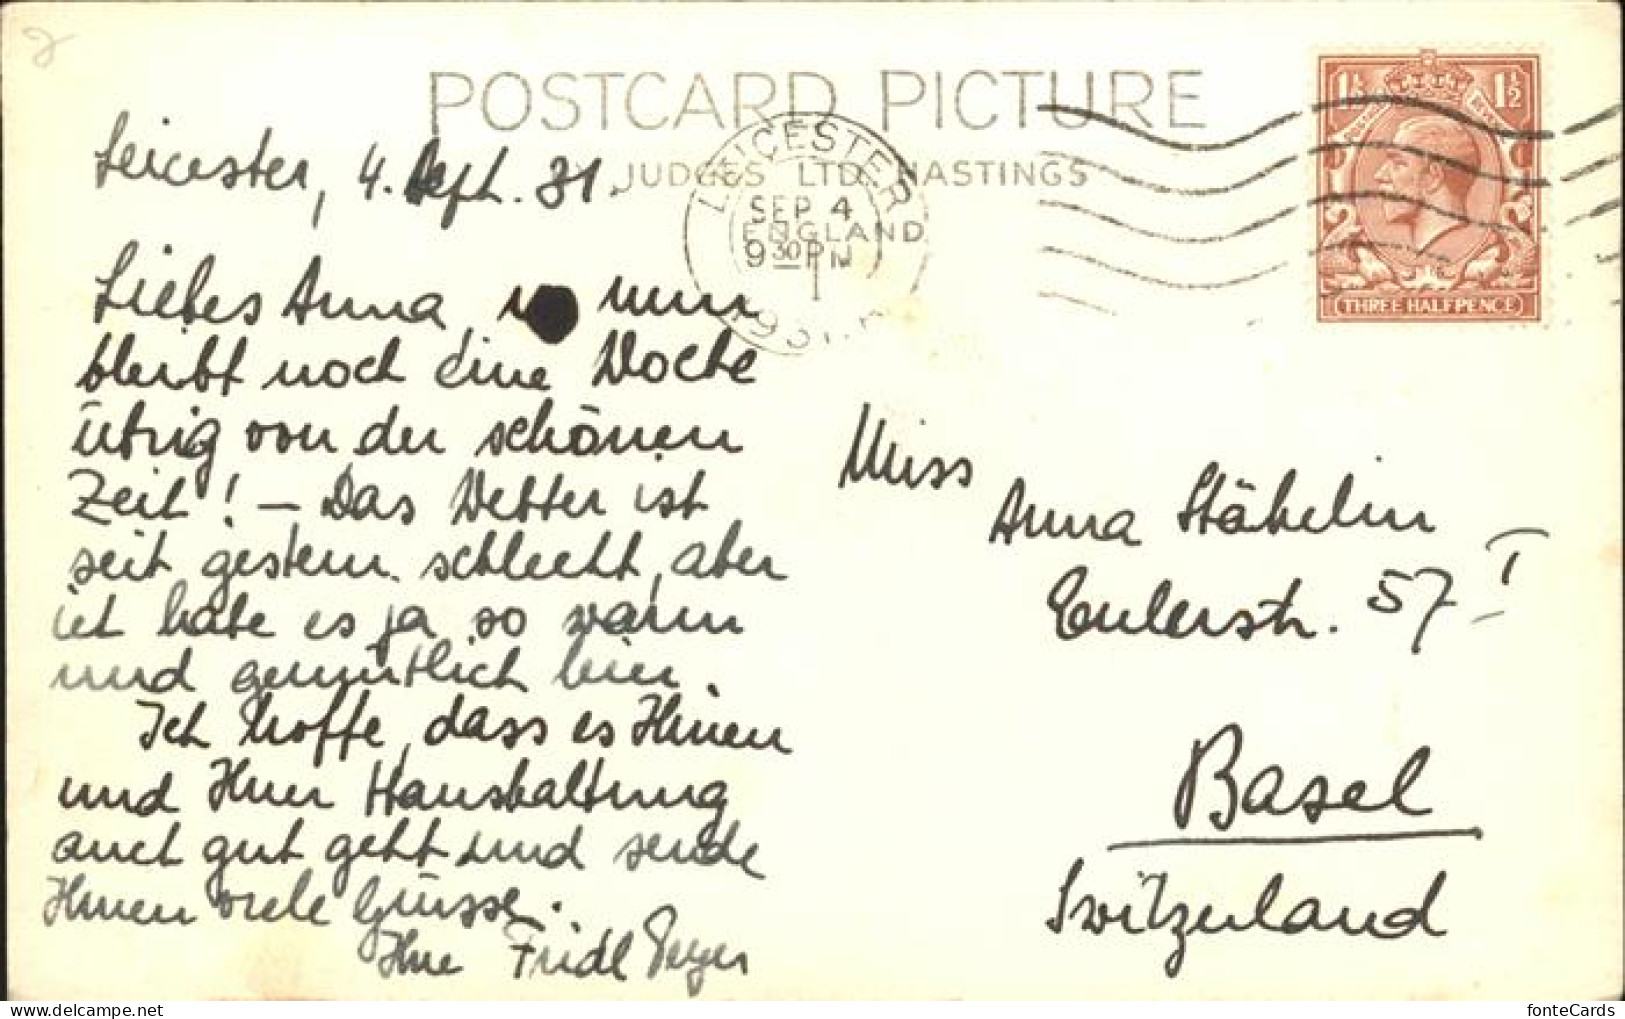 POSTCARD PICTURE
JUDGES LTD HASTINGS
LEICESTER
SEP 4
ENGLAND
9 30 PM
1931
1½ 1½
THREE HALFPENCE
Leicester, 4. Sept. 31.
Liebes Anna nun
bleibt noch eine Woche
übrig von der schönen
Zeit! – Das Wetter ist
seit gestern schlecht, aber
ich habe es ja so warm
und gemütlich hier.
Ich hoffe, dass es Ihnen
und Ihrer Haushaltung
auch gut geht und sende
Ihnen viele Grüsse.
Ihre Fridl Peyer
Miss
Anna Stähelin
Eulerstr. 57 I
Basel
Switzerland
fonteCards